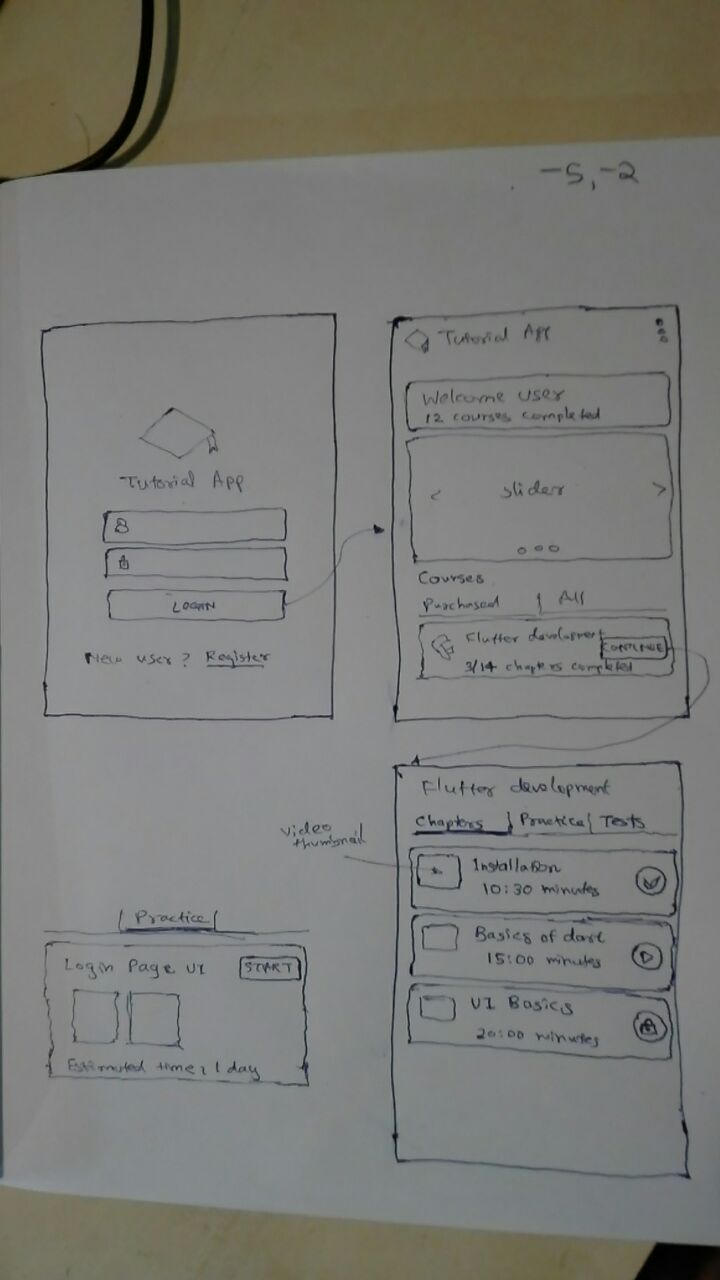 -5,-2
Tutorial App
LOGIN
New user? Register
Tutorial App
Welcome user
12 courses completed
< slider >
Courses
Purchased | All
Flutter development
CONTINUE
3/14 chapters completed
Flutter development
Chapters | Practice | Tests
video
thumbnail
Installation
10:30 minutes
Basics of dart
15:00 minutes
UI Basics
20:00 minutes
| Practice |
Login Page UI START
Estimated time : 1 day